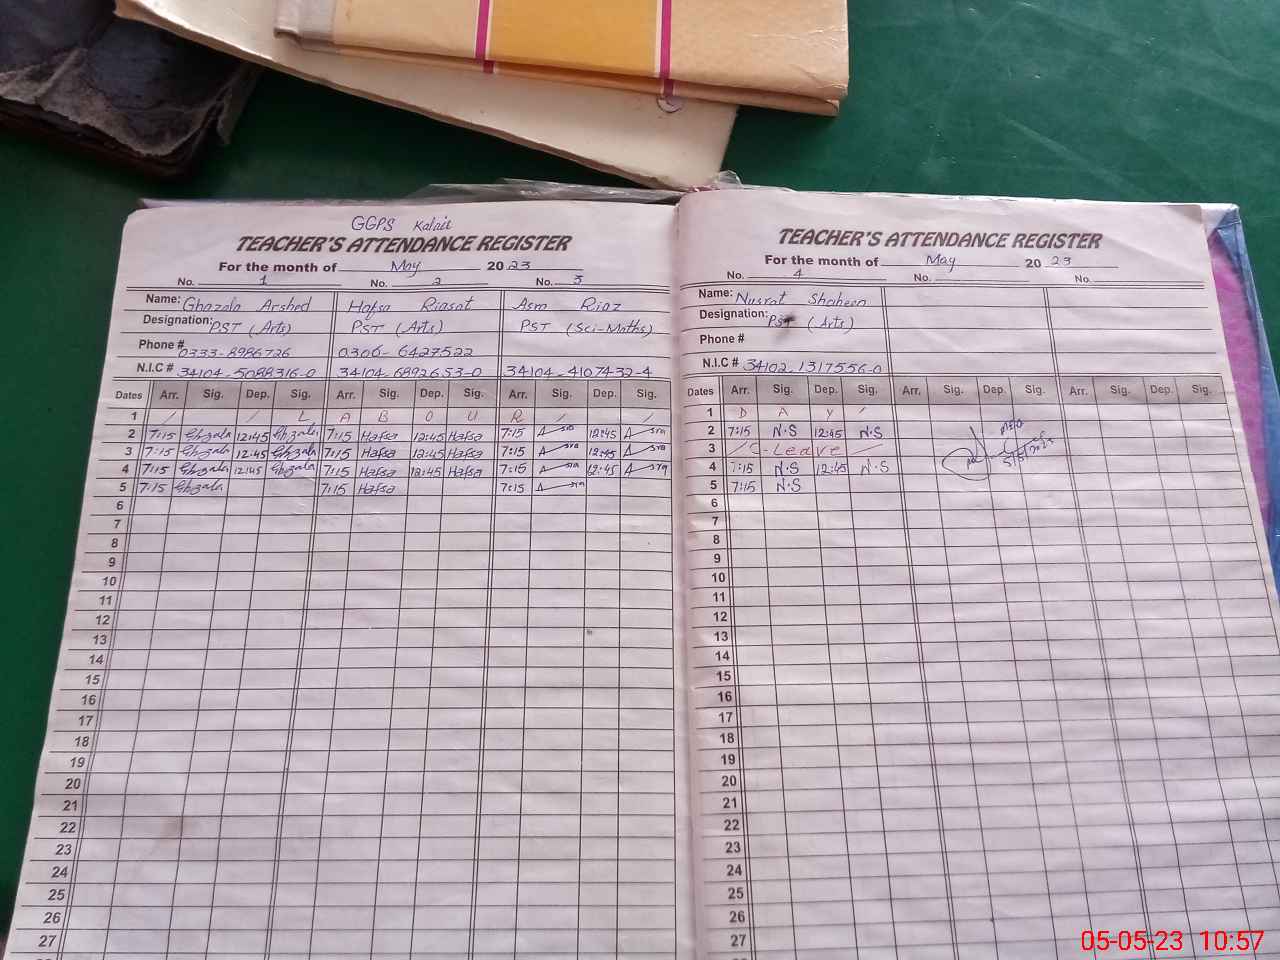 GGPS Kalait
TEACHER'S ATTENDANCE REGISTER
For the month of May 2023
No. 1 No. 2 No. 3
Name: Ghazala Arshed Hafsa Riasat Asm Riaz
Designation: PST (Arts) PST (Arts) PST (Sci-Maths)
Phone # 0333-8986726 0306-6427522
N.I.C # 34104-5088316-0 34104-6892653-0 34104-4107432-4
Dates Arr. Sig. Dep. Sig. Arr. Sig. Dep. Sig. Arr. Sig. Dep. Sig.
1 / / L A B O U R / /
2 7:15 Ghzala 12:45 Ghzala 7:15 Hafsa 12:45 Hafsa 7:15 12:45
3 7:15 Ghzala 12:45 Ghzala 7:15 Hafsa 12:45 Hafsa 7:15 12:45
4 7:15 Ghzala 12:45 Ghzala 7:15 Hafsa 12:45 Hafsa 7:15 12:45
5 7:15 Ghzala 7:15 Hafsa 7:15
6
7
8
9
10
11
12
13
14
15
16
17
18
19
20
21
22
23
24
25
26
27
TEACHER'S ATTENDANCE REGISTER
For the month of May 2023
No. 4 No. No.
Name: Nusrat Shaheen
Designation: PST (Arts)
Phone #
N.I.C # 34102-1317556-0
Dates Arr. Sig. Dep. Sig. Arr. Sig. Dep. Sig. Arr. Sig. Dep. Sig.
1 D A Y /
2 7:15 N.S 12:45 N.S
3 / C-Leave /
4 7:15 N.S 12:45 N.S
5 7:15 N.S
6
7
8
9
10
11
12
13
14
15
16
17
18
19
20
21
22
23
24
25
26
27
05-05-23 10:57